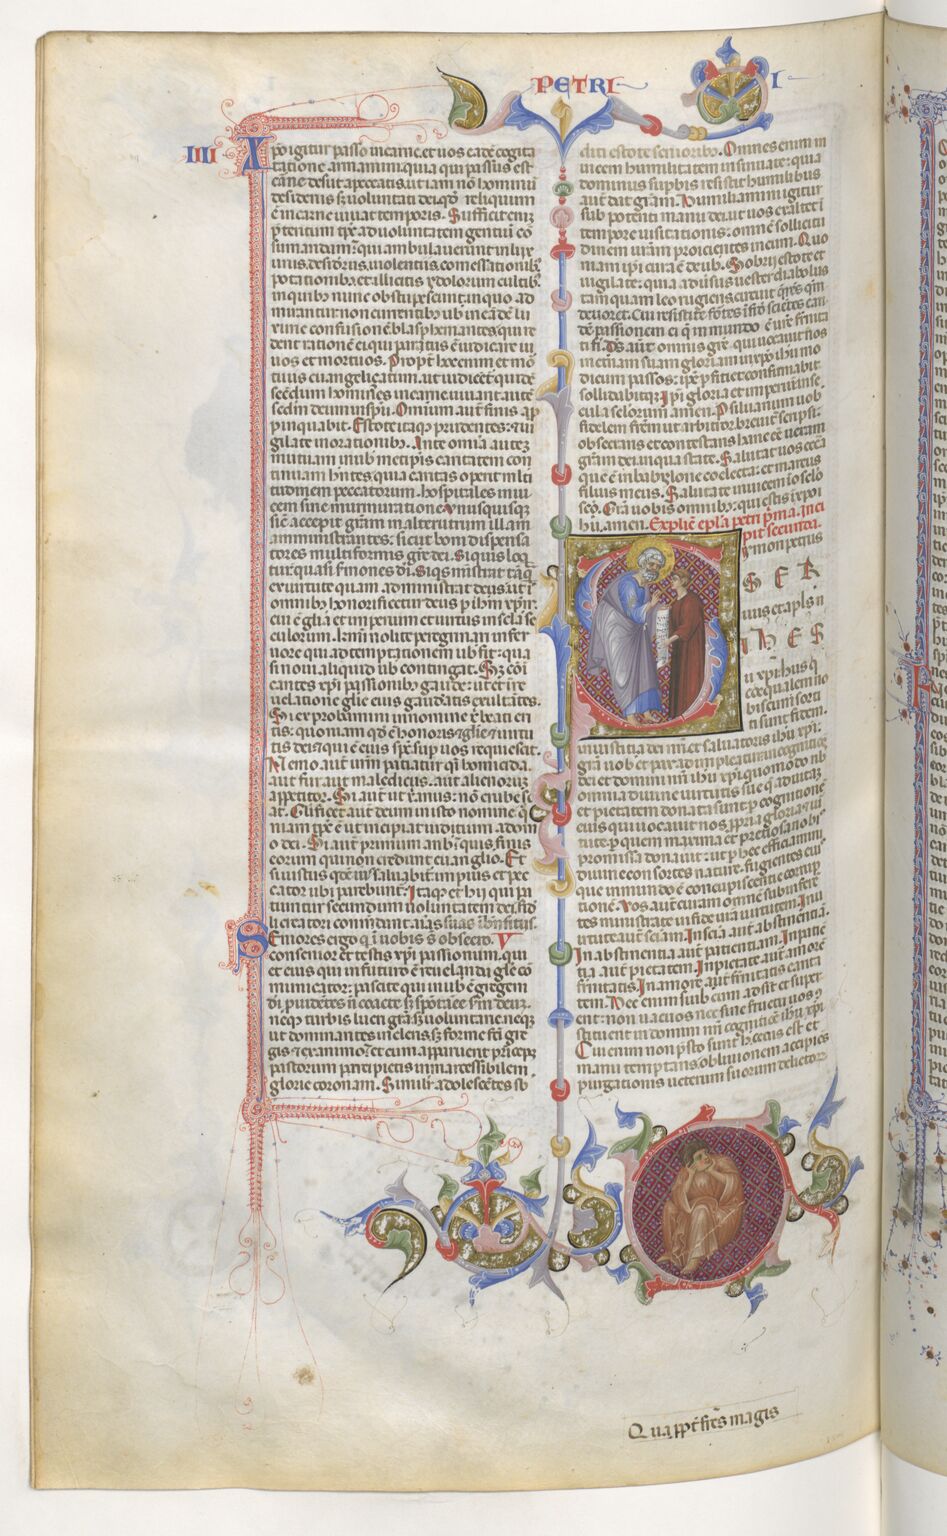 PETRI I
IIII
Xpo igitur passo in carne. et uos eadē cogita
tatione armamini. quia qui passus est
carne desiit a peccatis. ut iam nō hominū
desideriis sz uoluntati dei. qđ reliquum
ē in carne uiuat temporis. Sufficit enim
p̄teritum tp̄s ad uoluntatem gentiū cō
sumandam. qui ambulauerunt in luxu
riis. desideriis. uiolentiis. comessationibz
potationibz. et illicitis ydolorum cultibz.
in quibz nunc obstupescunt. in quo ad
mirantur non currentibz uob in eādē lu
xurie confusionē blasphemantes. qui re
dent rationē ei qui paratus ē iudicare ui
uos et mortuos. Propt̄ hoc enim et mor
tuis euangelizatum. ut iudicēt quidē
secđum homines in carne. uiuant autē
secđm deum in spū. Omium aut̄ finis ap
pinquabit. Estote itaqz prudentes. et ui
gilate in orationibz. Ante omīa autez
mutuam in uob metip̄is caritatem con
tinuam hn̄tes. quia caritas operit mlti
tudinem peccatorum. hospitales inui
cem sine murmuratione. unusquisque
sic accepit grām in alterutrum illam
amministrantes. sicut boni dispensa
tores multiformis gr̄e dei. Si quis loq̄
tur. quasi s̄mones dī. Si q̄s ministrat tāq̄
ex uirtute quam administrat deus. ut ī
omnibz honorificetur deus p ihm xp̄m.
cui ē glīa et imperium et uirtus in secla se
culorum. Kmi nolite peregrinari in feruore
uore qui ad temptationem uob fit. qua
si noui aliquid uob contingat. Sz cōi
cantes xp̄i passionibz gaudete. ut et in re
uelatione glīe eius gaudeatis exultantes.
Si exprobramini in nomine xp̄i beati eri
tis. quoniam qđ ē honoris et glīe et uirtu
tis dei. et qui ē eius sp̄s. sup uos requiescit.
Nemo aut̄ ur̄m patiatur q̄i homicida.
aut fur. aut maledicus. aut alienorum
appetitor. Si aut̄ ut xp̄ianus. nō erubesc
at. Glificet aut̄ deum in isto nomine. q̄
niam tps̄ ē ut incipiat iuditium a domo
o dei. Si aut̄ primum a nobis. quis finis
eorum qui non credunt euanglio. Et
si iustus qđē uix saluabit̄. impius et pec
cator ubi parebunt. Itaqz et hii qui pa
tiuntur secundum uoluntatem dei. fid
li creatori commendant aīas suas ibn̄fictis.
Seniores ergo q̄ i uobis s̄ obsecro. V
consenior et testis xp̄i passionum. qui
et eius qui in futuro ē reuelandi glīe co
municator. pascite qui in uob ē gregem
dī. puidentes n̄ coacte sz spōtanee scđm deuz.
neqz turpis lucri grā. sz uoluntarie. neqz
ut dominantes in cleris. sz forme fcī gre
gis ex animo. et cum apparuerit prīceps
pastorum percipietis inmarcessibilem
glorie coronam. Similit̄ adolescētes sb
diti estote senioribz. Omnes enim in
uicem humilitatem insinuate. quia
dominus supbis resistit. humilibus
aut̄ dat grām. Humiliamini igitur
sub potenti manu dei. ut uos exaltet ī
tempore uisitationis. omnē sollicitu
dinem uestrām proicientes in eum. Quo
niam ip̄i cura ē de uob. Sobrii estote et
uigilate. quia aduersus uester diabolus
tamquam leo rugiens circuit q̄rens quē
deuoret. Cui resistite fortes ī fide. scientes ean
dē passionem ei q̄ in mundo ē ur̄e frnita
ti fi. Ds̄ aut̄ omnis gr̄e. qui uocauit nos
in et̄nam suam gloriam in xp̄o ihu. mo
dicum passos. ipe pficiet confirmabit
solidabitqz. Ipi gloria et imperium in se
cula seclorum amen. P siluanum uob
fidelem frem ut arbitror breuit̄ scripsi.
obsecrans et contestans hanc eē ueram
grām dei. in qua state. Salutat uos ecca
que ē in babilone coelecta. et marcus
filius meus. Salutate inuicem ī osclo
scō. Gra uobis omnibz. qui estis ī xpo
ihu. amen. Explic̄ epl̄a petri p̄ma. Inci
pit secunda.
Symon petrus
SER
uus et apl̄s n
IHES
u xp̄i. hiis q̄
coequalem no
biscum sorti
ti sunt fidem.
in iustitia dei nr̄i et saluatoris ihu xp̄i.
grā uob et pax adimpleatur. in cognitiōe
dei et domini nr̄i ihu xp̄i. quomodo nob
omnia diuine uirtutis sue q̄ ad uitaz
et pietatem donata sunt p cognitionē
eius qui uocauit nos ppria gloria et uir
tute. p quem maxima et pretiosa nobi
promissa donauit. ut p hec efficiamini
diuine consortes nature. fugientes eius
que in mundo ē concupiscentie corrup
tionē. Vos aut̄ curam omnē subinferē
tes ministrate in fide ur̄a uirtutem. In
uirtute aut̄ sciam. In scīa aut̄ abstinentiā.
In abstinentia aut̄ patientiam. In patiē
tia aut̄ pietatem. In pietate aut̄ amorē
fr̄nitatis. In amore aut̄ fr̄nitatis carita
tem. Hec enim si uob cum adsīt et super
ent. non uacuos nec sine fructu uos 9
stituent in domini nr̄i cognitiōe ihu xp̄i
Cui enim non p̄sto sunt hec. cecus est et
manu temptans. obliuionem accipiēs
purgationis ueterum suorum delictor
Qua ppt̄ fr̄es magis